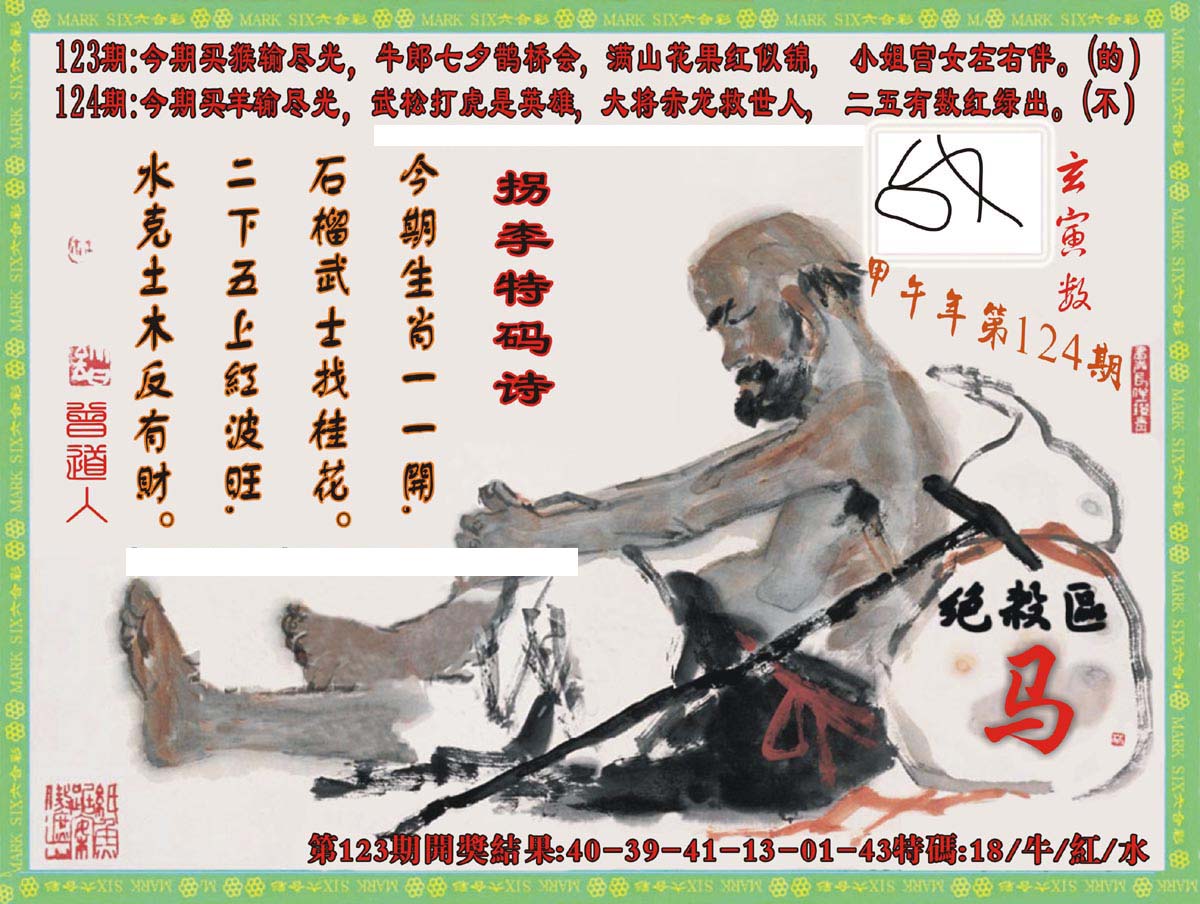 MARK SIX六合彩
123期:今期买猴输尽光，牛郎七夕鹊桥会，满山花果红似锦，小姐宫女左右伴。(的)
124期:今期买羊输尽光，武松打虎是英雄，大将赤龙救世人，二五有数红绿出。(不)
玄寅数
甲午年第124期
拐李特码诗
今期生肖一一開.
石榴武士找桂花。
二下五上紅波旺.
水克土木反有財。
曾道人
绝殺區
马
第123期開獎結果:40-39-41-13-01-43特碼:18/牛/紅/水